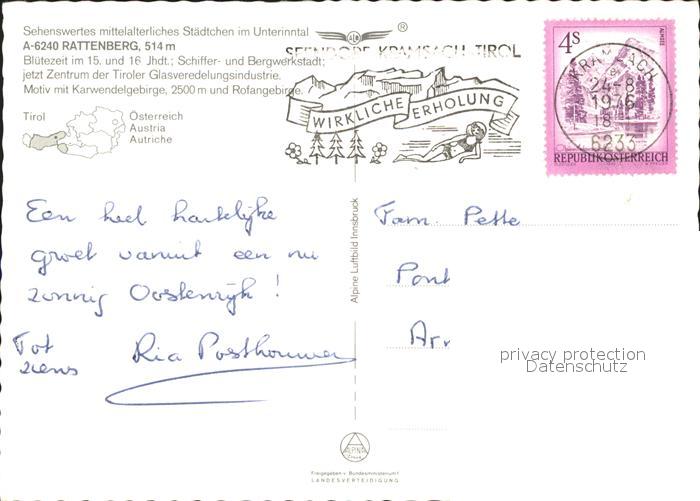 Sehenswertes mittelalterliches Städtchen im Unterinntal
A-6240 RATTENBERG, 514 m
Blütezeit im 15. und 16 Jhdt.; Schiffer- und Bergwerkstadt;
jetzt Zentrum der Tiroler Glasveredelungsindustrie.
Motiv mit Karwendelgebirge, 2500 m und Rofangebirge.
Tirol
Österreich
Austria
Autriche
®
SEENDORF KRAMSACH TIROL
WIRKLICHE ERHOLUNG
4S
ALMSEE
KRAMSACH
24-8
1976
18
6233
REPUBLIK ÖSTERREICH
Een heel hartelijke
groet vanuit een nu
zonnig Oostenrijk!
Tot
ziens
Ria Posthoumer
Alpine Luftbild Innsbruck
Fam. Pette
Pont
Arr
privacy protection
Datenschutz
ALPINE
Freigegeben v. Bundesministerium f.
LANDESVERTEIDIGUNG